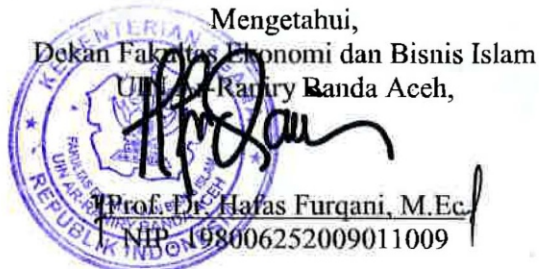 Mengetahui,
Dekan Fakultas Ekonomi dan Bisnis Islam
UIN Ar-Raniry Banda Aceh,
Prof. Dr. Hafas Furqani, M.Ec
NIP. 198006252009011009
KEMENTERIAN AGAMA
REPUBLIK INDONESIA
UIN AR-RANIRY BANDA ACEH